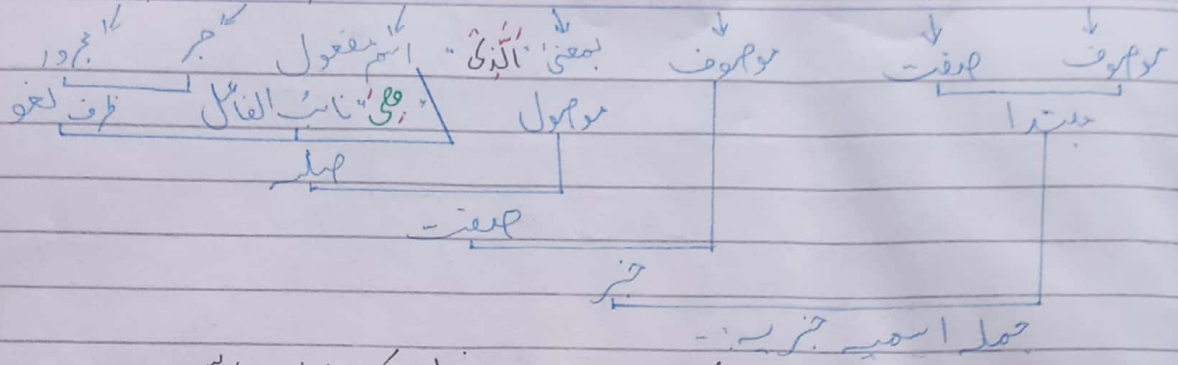 موصوف صفت موصوف بمعنیٰ "اَلَّذِیْ" اسم مفعول جر مجرور
مبتدا موصول "ھِیَ" نائب الفاعل ظرف لغو
صلہ
صفت
خبر
جملہ اسمیہ خبریہ :-